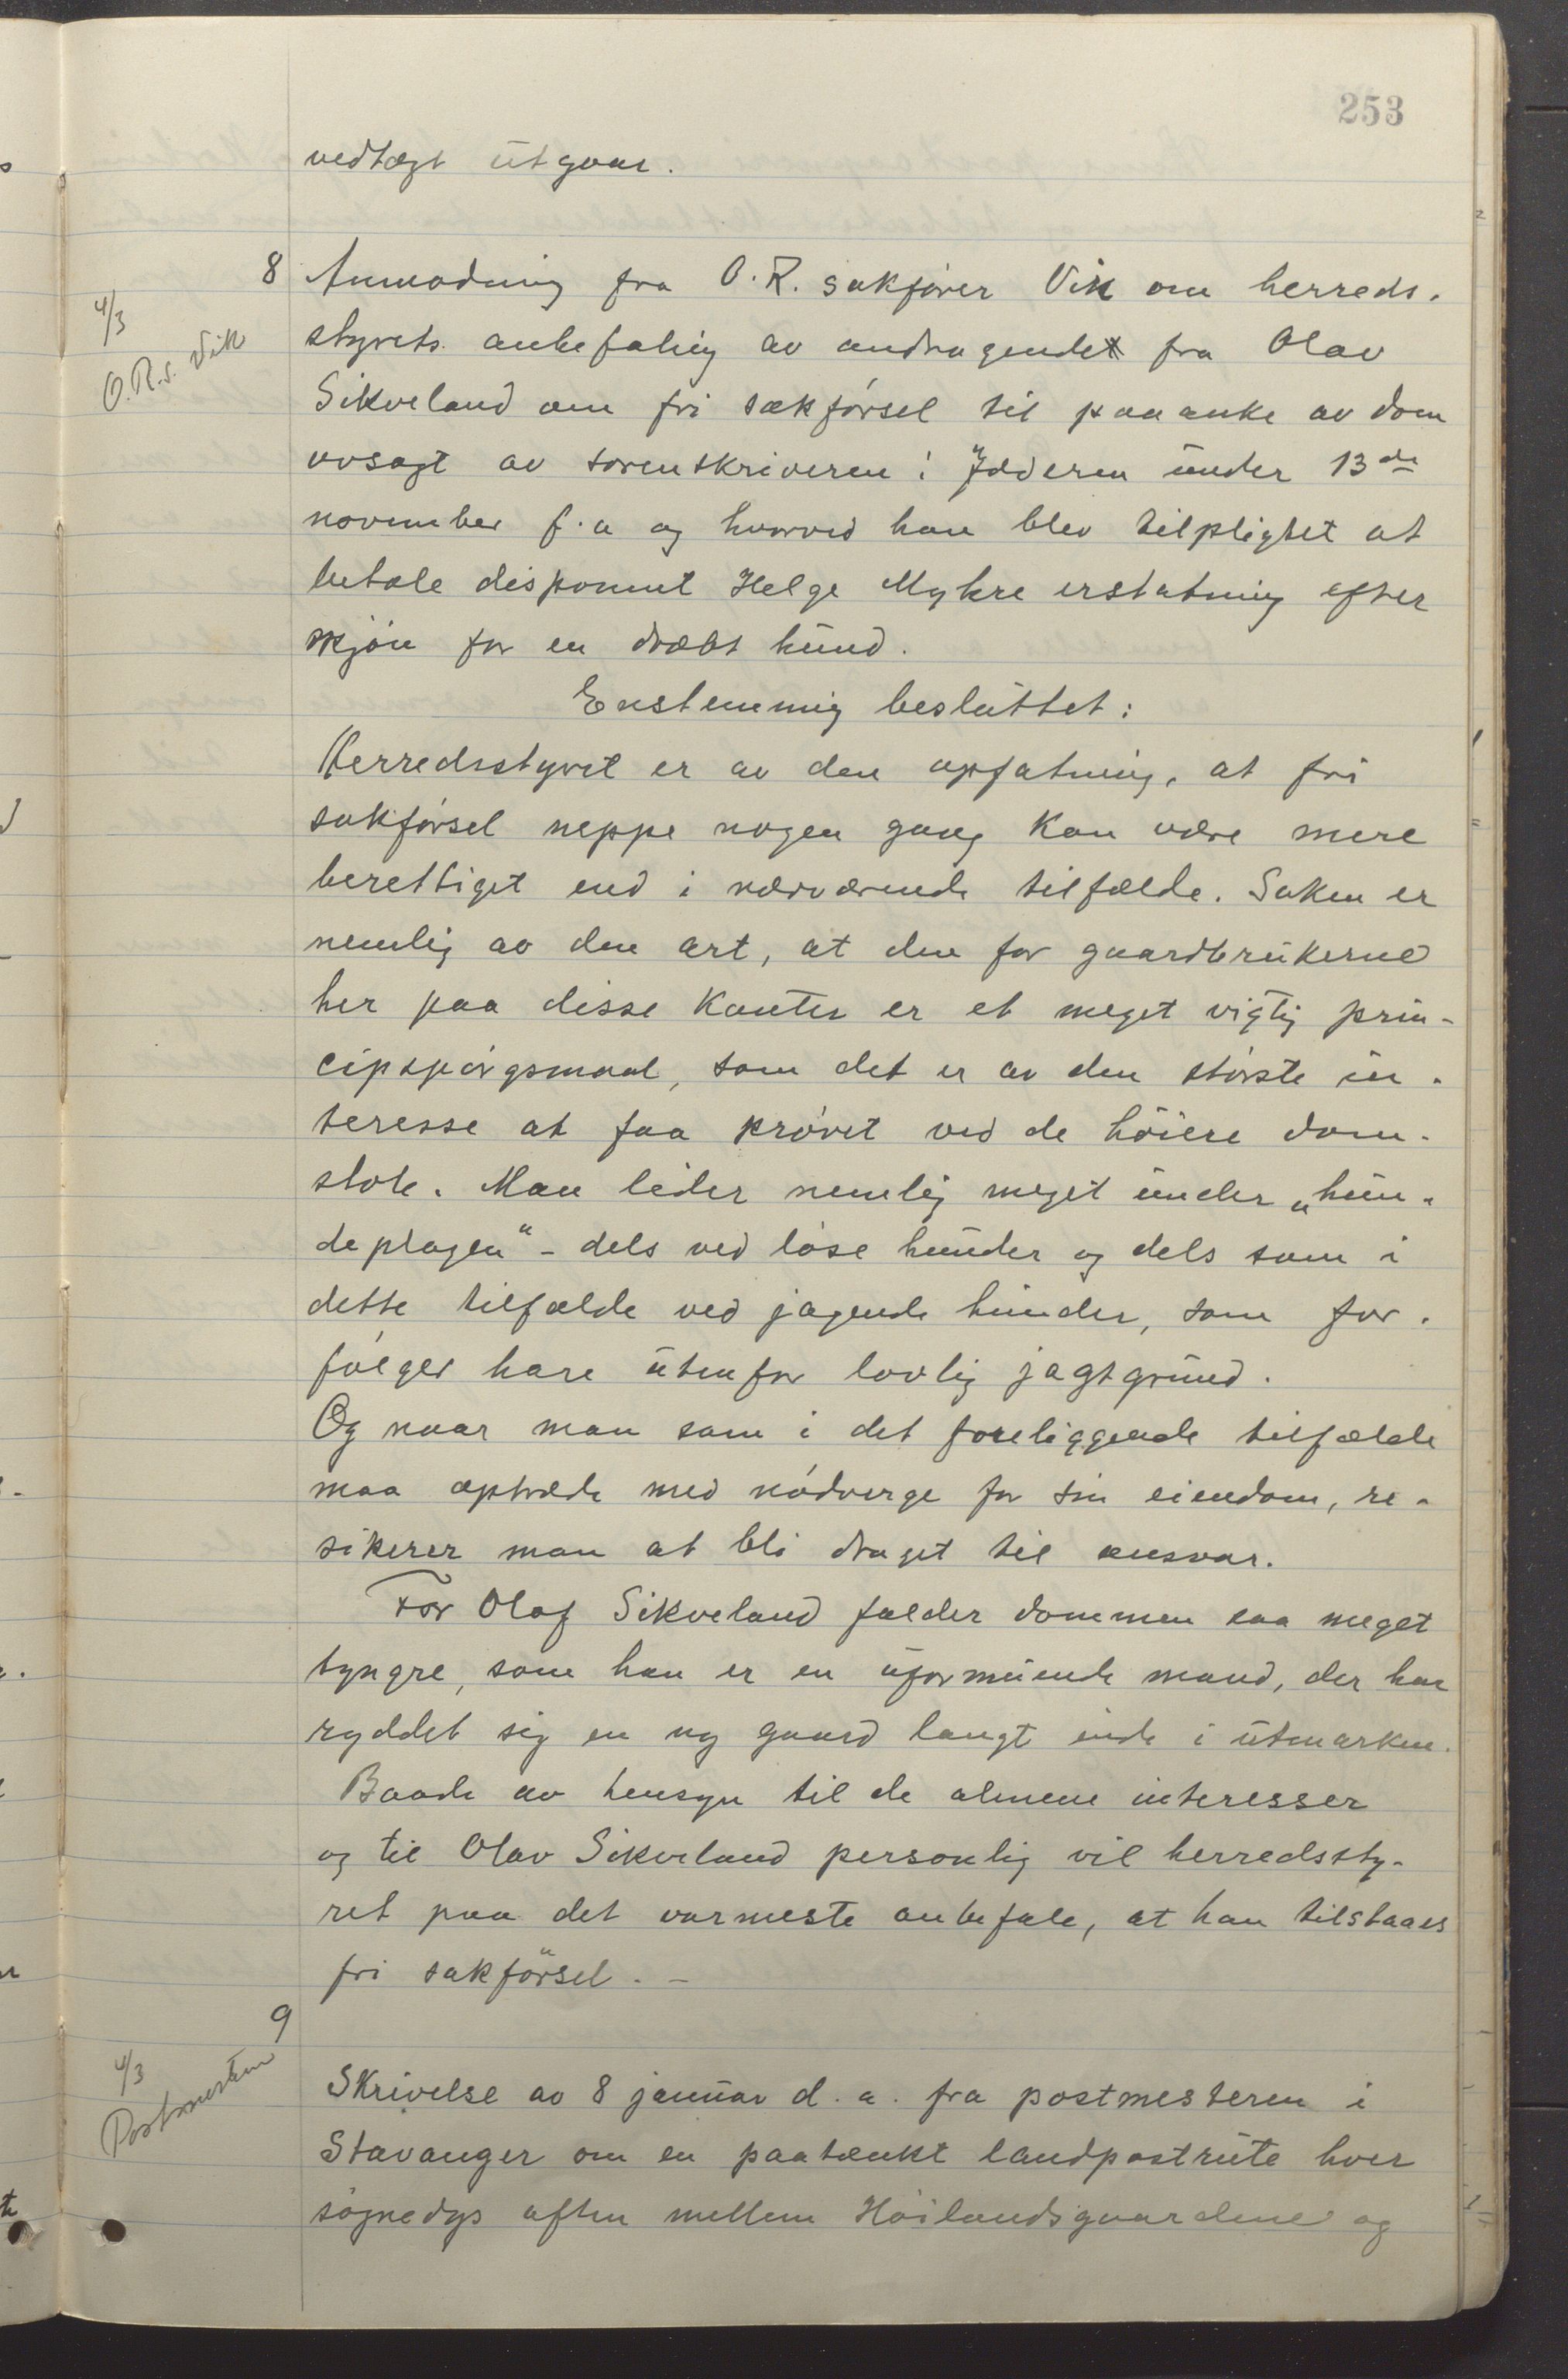 253
vedtægt utgaar.
8 Anmodning fra O.R. sakfører Vik om herreds-
4/3
O.R.s. Vik
styrets anbefaling av andragende fra Olav
Sikveland om fri sakførsel til paaanke av dom
avsagt av sorenskriveren i Jæderen under 13de
november f.a og hvorved han blev tilpligtet at
betale disponent Helge Mykre erstatning efter
skjøn for en dræbt hund.
Enstemmig besluttet:
Herredsstyret er av den opfatning, at fri
sakførsel neppe nogen gang kan være mere
berettiget end i nærværende tilfælde. Saken er
nemlig av den art, at den for gaardbrukerne
her paa disse kanter er et meget vigtig prin-
cipspørgsmaal, som det er av den største in-
teresse at faa prøvet ved de höiere dom-
stole. Man lider nemlig meget under „hun-
deplagen“ - dels ved løse hunder og dels som i
dette tilfælde ved jagende hunder, som for-
følger hare utenfor lovlig jagtgrund.
Og naar man som i det foreliggende tilfælde
maa optræde med nødverge for sin eiendom, re-
sikerer man at bli draget til ansvar.
For Olaf Sikveland falder dommen saa meget
tyngre, som han er en uformuende mand, der har
ryddet sig en ny gaard langt inde i utmarken.
Baade av hensyn til de almene interesser
og til Olav Sikveland personlig vil herredssty-
ret paa det varmeste anbefale, at han tilstaaes
fri sakförsel. -
9
4/3
Postmesteren
Skrivelse av 8 januar d.a. fra postmesteren i
Stavanger om en paatænkt landpostrute hver
søgnedgs aften mellem Höilandsgaardene og